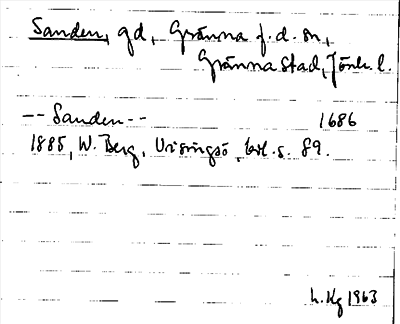 Sanden, gd, Gränna f.d. sn,
Gränna stad, Jönk. l.
--Sanden-- 1686
1885, W. Berg, Visingsö, bil. s. 89.
L. Kg 1963